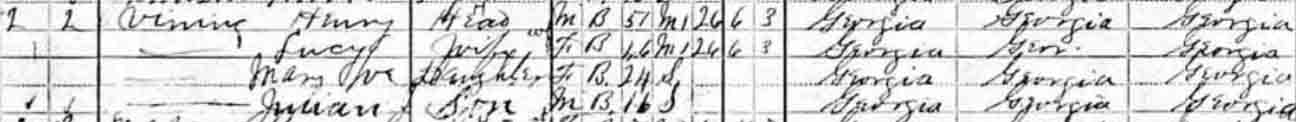 2 2 Vining Henry Head M B 51 M1 26 6 3 Georgia Georgia Georgia
1 — Lucy Wife F B 46 M1 26 6 3 Georgia Geor. Georgia
— Mary Daughter F B 24 S Georgia Georgia Georgia
— Julian Son M B 16 S Georgia Georgia Georgia